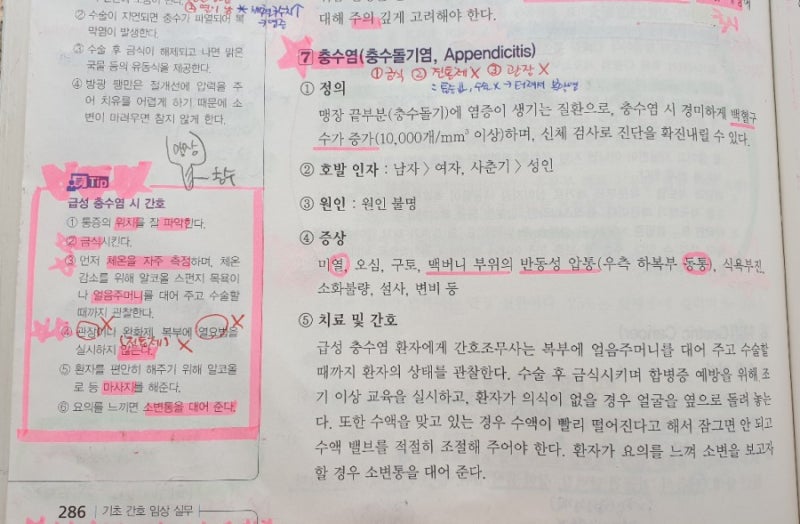 ② 수술이 지연되면 충수가 파열되어 복
막염이 발생한다.
③ 수술 후 금식이 해제되고 나면 맑은
국물 등의 유동식을 제공한다.
④ 방광 팽만은 절개선에 압력을 주
어 치유를 어렵게 하기 때문에 소
변이 마려우면 참지 않게 한다.
맹장
충수
Tip
급성 충수염 시 간호
① 통증의 위치를 잘 파악한다.
② 금식시킨다.
③ 먼저 체온을 자주 측정하며, 체온
감소를 위해 알코올 스펀지 목욕이
나 얼음주머니를 대어 주고 수술할
때까지 관찰한다.
④ 관장이나 완화제, 복부에 열요법을
실시하지 않는다.
(진통제) X
⑤ 환자를 편안히 해주기 위해 알코올
로 등 마사지를 해준다.
⑥ 요의를 느끼면 소변통을 대어 준다.
286 | 기초 간호 임상 실무
대해 주의 깊게 고려해야 한다.
7 충수염(충수돌기염, Appendicitis)
① 금식 ② 진통제 X ③ 관장 X
① 정의
맹장 끝부분(충수돌기)에 염증이 생기는 질환으로, 충수염 시 경미하게 백혈구
수가 증가(10,000개/mm³ 이상)하며, 신체 검사로 진단을 확진내릴 수 있다.
② 호발 인자 : 남자 > 여자, 사춘기 > 성인
③ 원인 : 원인 불명
④ 증상
미열, 오심, 구토, 맥버니 부위의 반동성 압통(우측 하복부 동통), 식욕부진,
소화불량, 설사, 변비 등
⑤ 치료 및 간호
급성 충수염 환자에게 간호조무사는 복부에 얼음주머니를 대어 주고 수술할
때까지 환자의 상태를 관찰한다. 수술 후 금식시키며 합병증 예방을 위해 조
기 이상 교육을 실시하고, 환자가 의식이 없을 경우 얼굴을 옆으로 돌려 놓는
다. 또한 수액을 맞고 있는 경우 수액이 빨리 떨어진다고 해서 잠그면 안 되고
수액 밸브를 적절히 조절해 주어야 한다. 환자가 요의를 느껴 소변을 보고자
할 경우 소변통을 대어 준다.